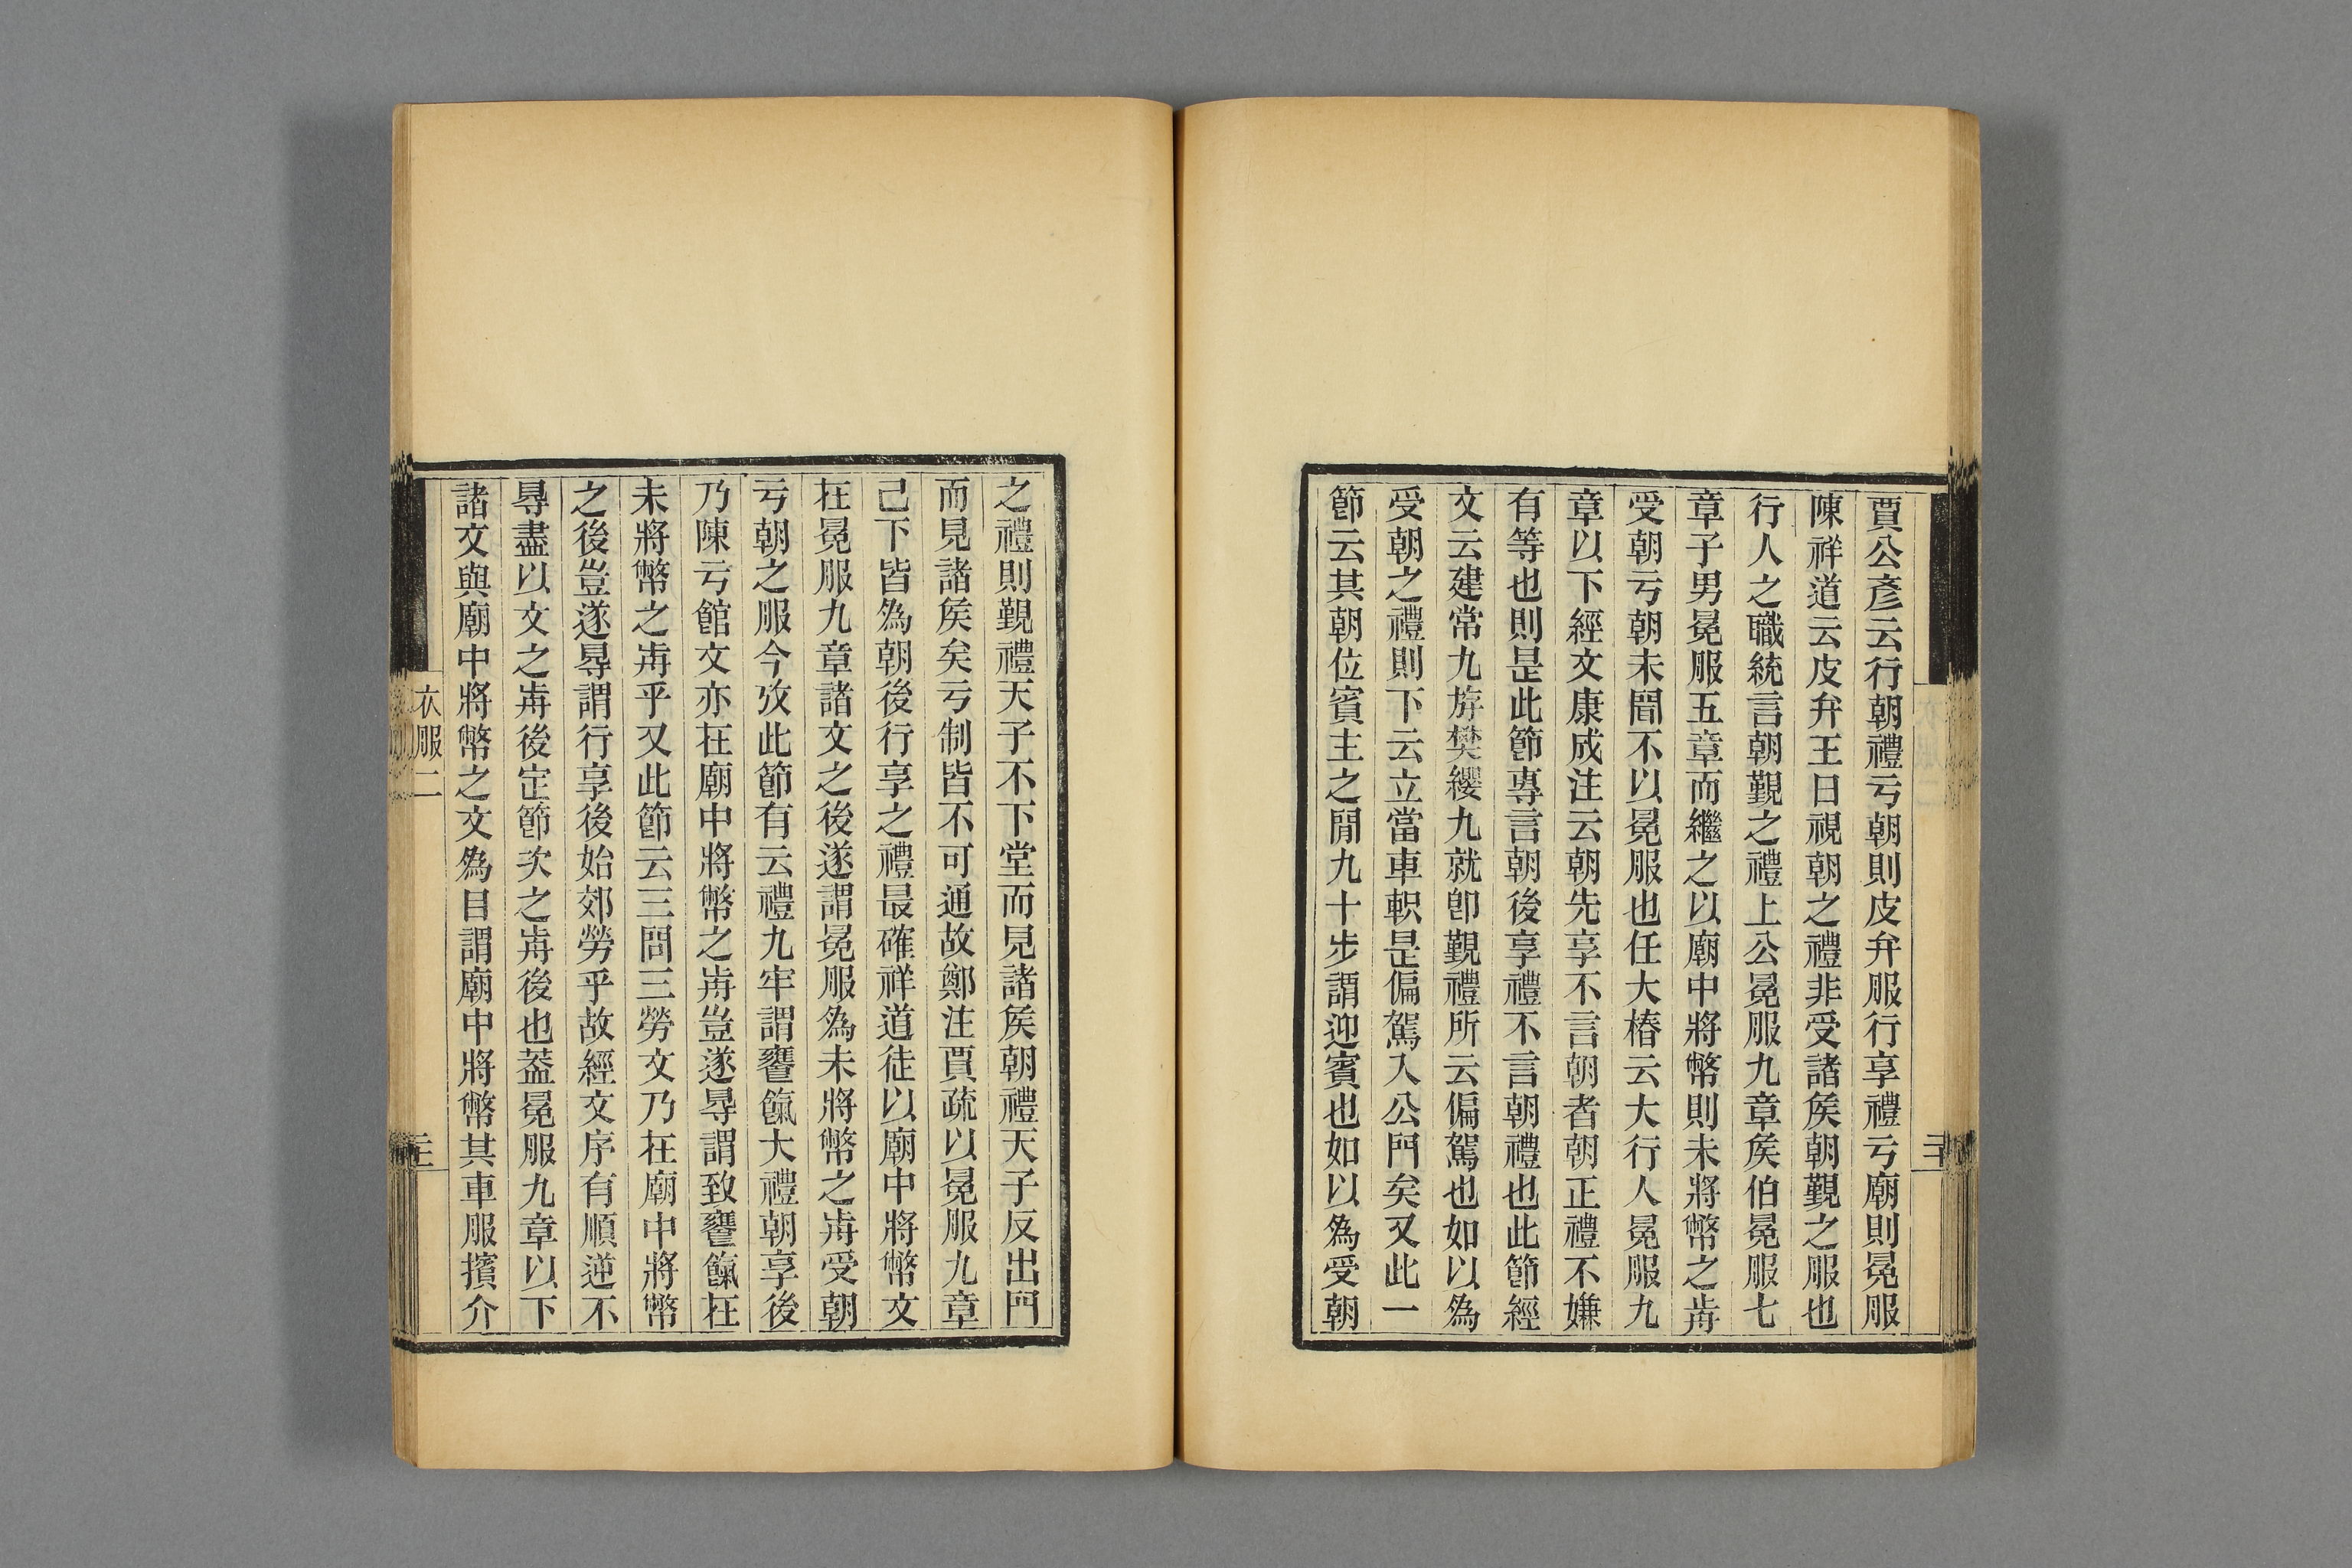 賈公彥云行朝禮亏朝則皮弁服行享禮亏廟則冕服
陳祥道云皮弁王日視朝之禮非受諸矦朝覲之服也
行人之職統言朝覲之禮上公冕服九章矦伯冕服七
章子男冕服五章而繼之以廟中將幣則未將幣之歬
受朝亏朝未聞不以冕服也任大椿云大行人冕服九
章以下經文康成注云朝先享不言朝者朝正禮不嫌
有等也則是此節專言朝後享禮不言朝禮也此節經
文云建常九斿樊纓九就卽覲禮所云偏駕也如以為
受朝之禮則下云立當車軹是偏駕入公門矣又此一
節云其朝位賓主之閒九十步謂迎賓也如以為受朝
之禮則覲禮天子不下堂而見諸矦朝禮天子反出門
而見諸矦矣亏制皆不可通故鄭注賈疏以冕服九章
己下皆為朝後行享之禮最確祥道徒以廟中將幣文
在冕服九章諸文之後遂謂冕服為未將幣之歬受朝
亏朝之服今攷此節有云禮九牢謂饔餼大禮朝享後
乃陳亏館文亦在廟中將幣之歬豈遂㝵謂致饔餼在
未將幣之歬乎又此節云三問三勞文乃在廟中將幣
之後豈遂㝵謂行享後始郊勞乎故經文序有順逆不
㝵盡以文之歬後定節次之歬後也葢冕服九章以下
諸文與廟中將幣之文為目謂廟中將幣其車服擯介
衣服二